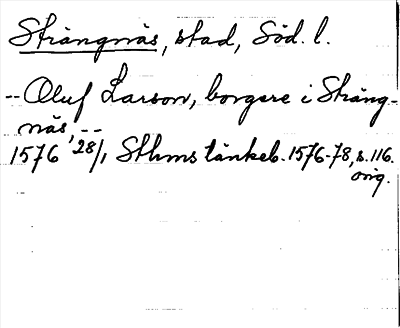 Strängnäs, stad, Söd. l.
-- Oluf Larson, borgere i Sträng-
näs, --
1576 28/1 Sthms tänkeb. 1576-78, s. 116.
orig.